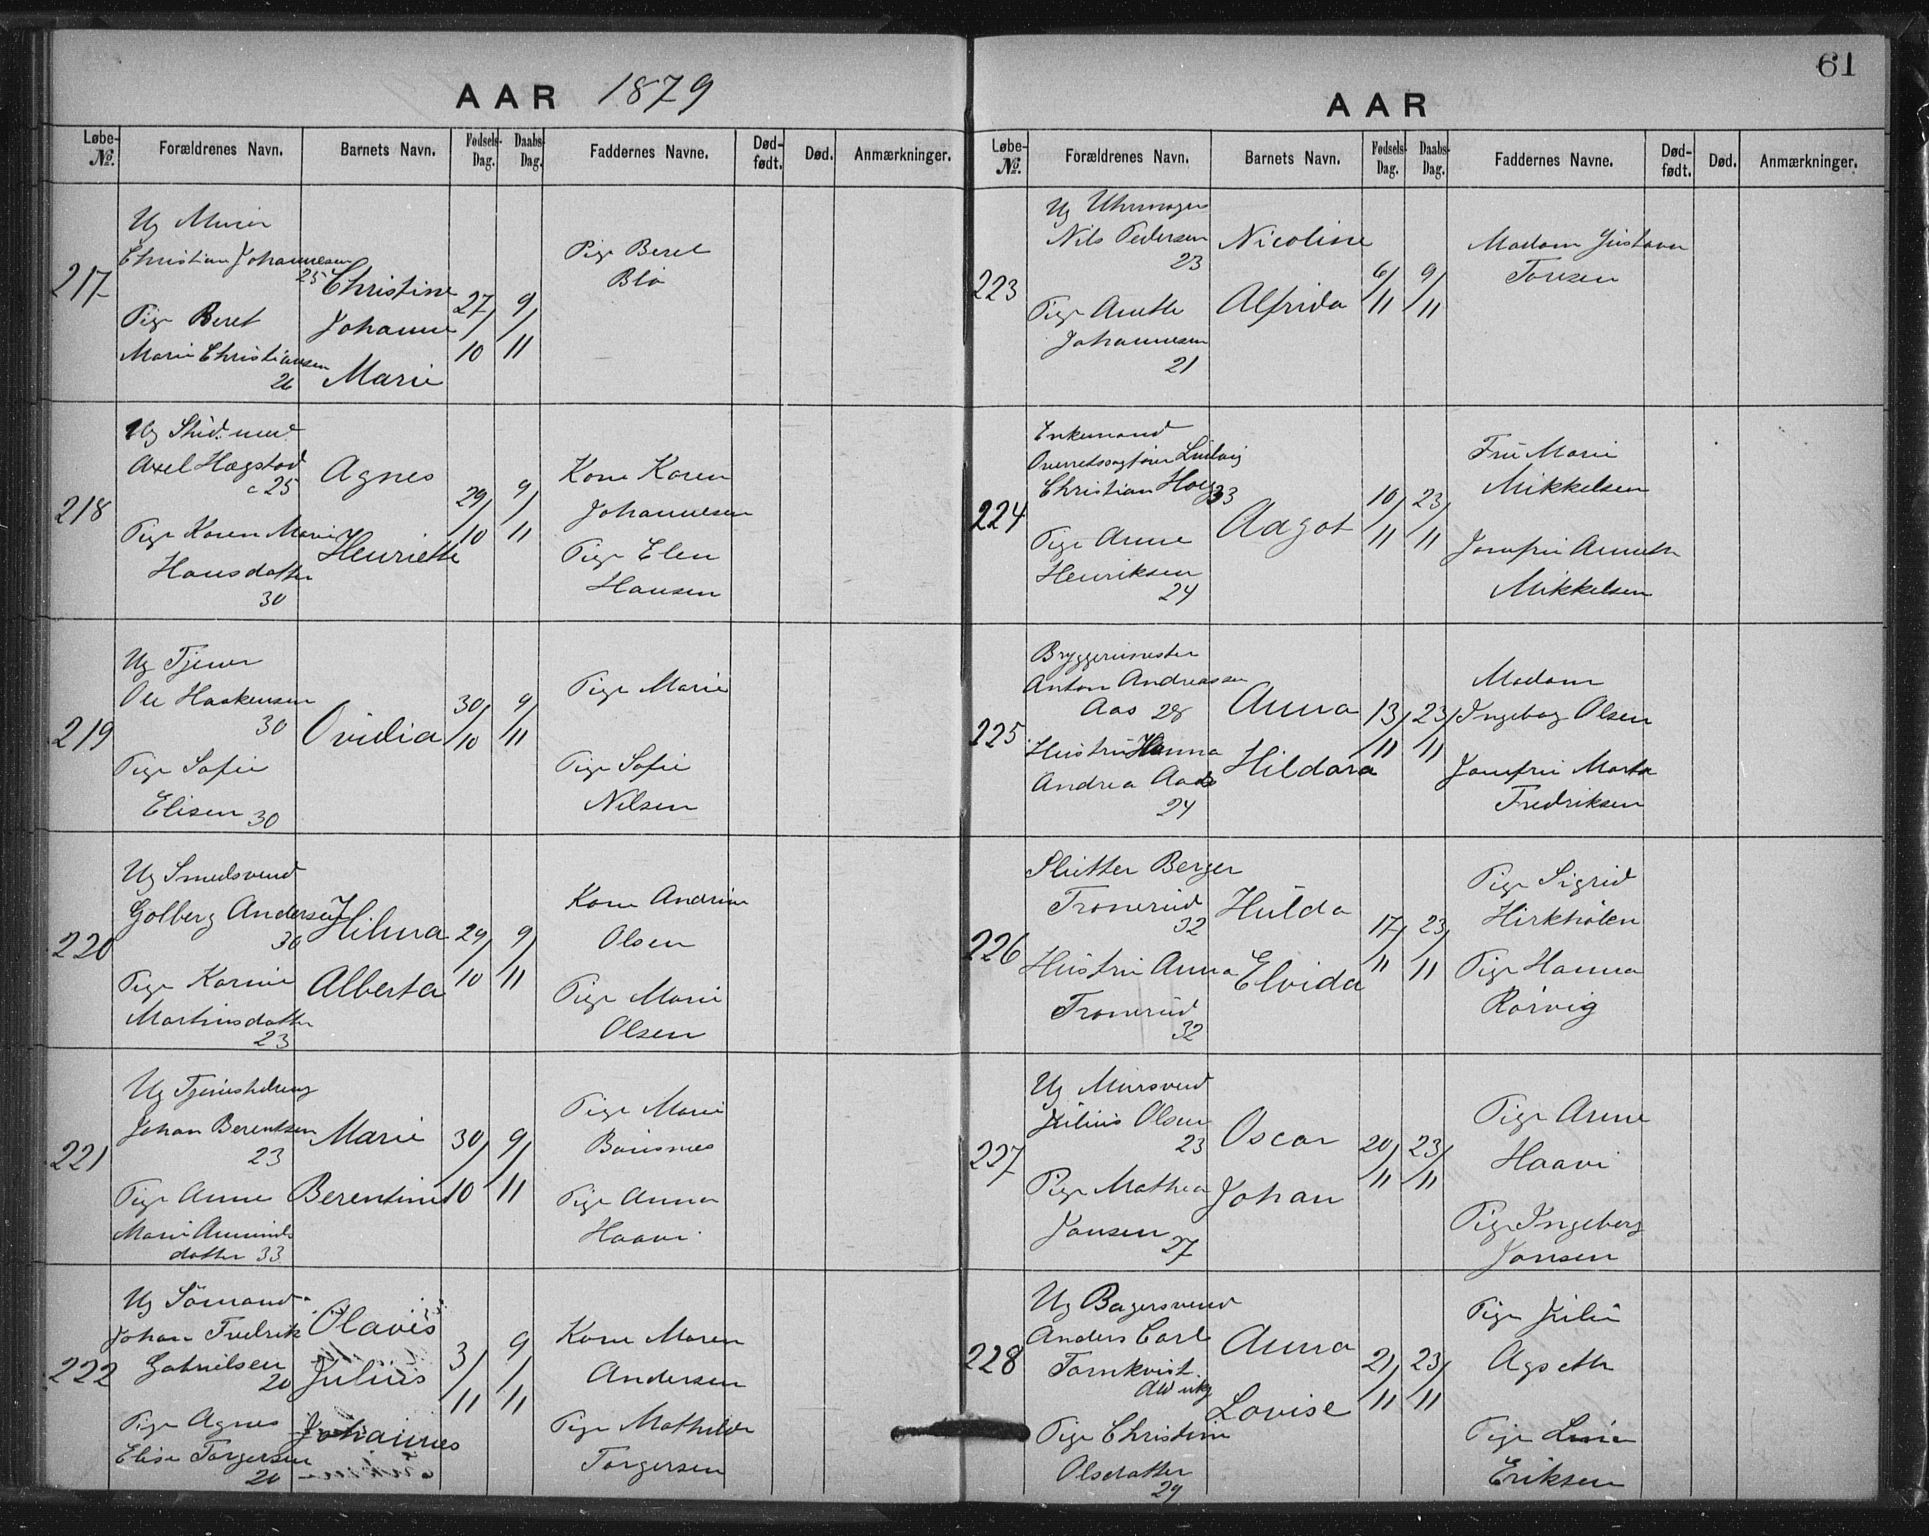 AAR 1879
Løbe-№. Forældrenes Navn. Barnets Navn. Fødsels-Dag. Daabs-Dag. Faddernes Navne. Død-født. Død. Anmærkninger.
217
Ug Murer
Christian Johannesen
25
Pige Beret
Marie Christiansen
26
Christine
Johanne
Marie
27/10 9/11
Pige Beret
Blö
218
Ug Stud. med.
Axel Hægstad
c 25
Pige Karen Marie
Hansdatter
30
Agnes
Henriette
29/10 9/11
Kone Karen
Johannesen
Pige Elen
Hansen
219
Ug Tjener
Ole Haakensen
30
Pige Sofie
Elisen 30
Ovidia
30/10 9/11
Pige Marie
Pige Sofie
Nilsen
220
Ug Smedsvend
Golberg Andersen
30
Pige Karine
Martinsdatter
23
Hilma
Alberta
29/10 9/11
Kone Andrine
Olsen
Pige Marie
Olsen
221
Ug Tjenestedreng
Johan Berentsen
23
Pige Anne
Marie Amunds
datter 33
Marie
Berentine
30/10 9/11
Pige Marie
Pige Anna
Haavi
222
Ug Sömand
Johan Fredrik
Gabrielsen
20
Pige Agnes
Elise Torgersen
20
Olavis
Julius
Johannes
3/11 9/11
Kone Maren
Andersen
Pige Mathilde
Torgersen
61
AAR
Løbe-№. Forældrenes Navn. Barnets Navn. Fødsels-Dag. Daabs-Dag. Faddernes Navne. Død-født. Død. Anmærkninger.
223
Ug Uhrmager
Nils Pedersen
23
Pige Anette
Johannesen
21
Nicoline
Alfrida
6/11 9/11
Madam Gustava
Toresen
224
Enkemand
Overretssagfører Ludvig
Christian Hoeg 33
Pige Anne
Henriksen
24
Aagot
10/11 23/11
Fru Marie
Mikkelsen
Jomfru Annette
Mikkelsen
225
Bryggerimester
Anton Andreassen
Aas 28
Hustru Hanna
Andrea Aas
24
Anna
Hildara
13/11 23/11
Madam
Ingebog Olsen
Jomfru Marta
Fredriksen
226
Slutter Berger
Tronerud
32
Hustru Anna
Tronerud
32
Hulda
Elvida
17/11 23/11
Pige Sigrid
Hirkhölen
Pige Hanna
Rörvig
227
Ug Mursvend
Julius Olsen
23
Pige Mathea
Jansen
27
Oscar
Johan
20/11 23/11
Pige Anne
Haavi
Pige Ingeborg
Jansen
228
Ug Bagersvend
Anders Carl
Tornkvist
Pige Christine
Olsdatter
29
Anna
Lovise
21/11 23/11
Pige Julie
Agseth
Pige Line
Eriksen